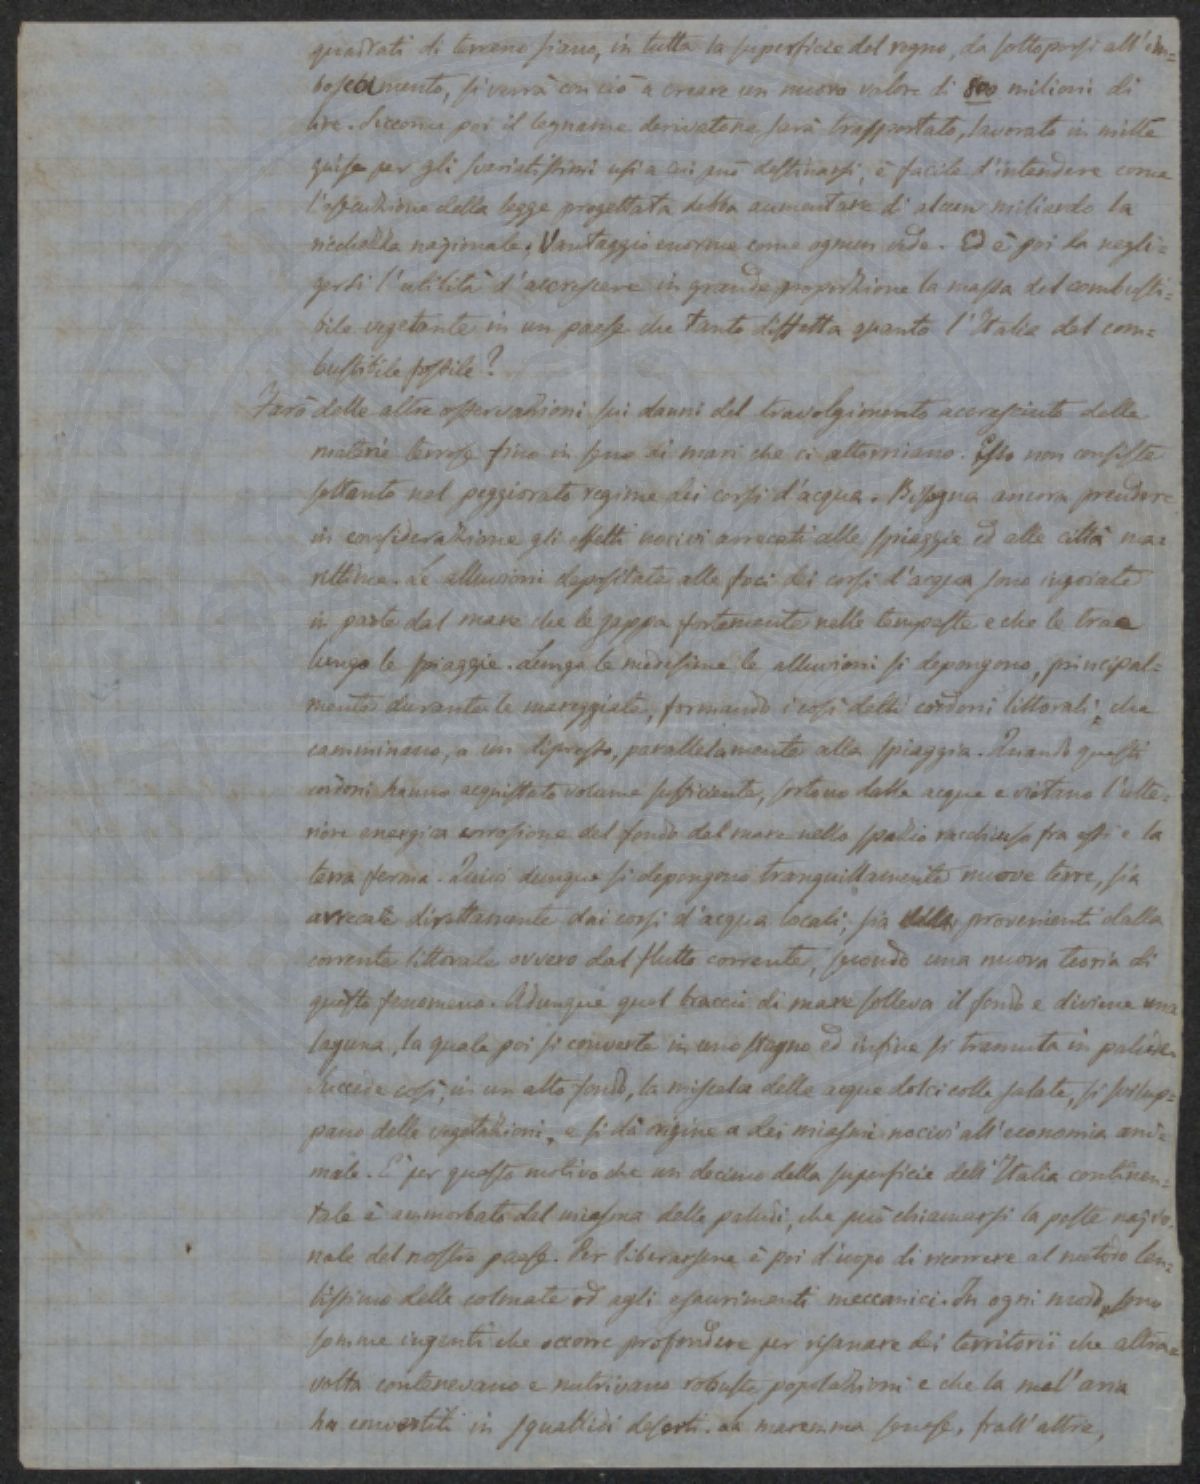 quadrati di terreno siano, in tutta la superficie del regno, da sottoporsi all'im=
boscamento, si verrà con ciò a creare un nuovo valore di 800 milioni di
lire. Siccome poi il legname derivatone sarà trasportato, lavorato in mille
guise per gli svariatissimi usi a cui può destinarsi, è facile d'intendere come
l'esecuzione della legge progettata debba aumentare di alcun miliardo la
ricchezza nazionale. Vantaggio enorme come ognun vede. Ed è poi da negli=
gersi l'utilità d'accrescere in grande proporzione la massa del combusti=
bile vegetante in un paese che tanto difetta quanto l'Italia del com=
bustibile fossile?
Farò delle altre osservazioni sui danni del travolgimento accresciuto delle
materie terrose fino in seno ai mari che ci attorniano. Esso non consiste
soltanto nel peggiorato regime dei corsi d'acqua. Bisogna ancora prendere
in considerazione gli effetti nocivi arrecati alle spiaggie ed alle città ma=
rittime. Le alluvioni depositate alle foci dei corsi d'acqua sono ingoiate
in parte dal mare che le zappa fortemente nelle tempeste e che le trae
lungo le spiaggie. Lungo le medesime le alluvioni si depongono, principal=
mente durante le mareggiate, formando i così detti cordoni littorali, che
camminano, a un dipresso, parallelamente alla spiaggia. Quando questi
cordoni hanno acquistato volume sufficiente, sortono dalle acque e vietano l'ulte=
riore energica corrosione del fondo del mare nello spazio racchiuso fra essi e la
terra ferma. Quivi dunque si depongono tranquillamente nuove terre, sia
arrecate direttamente dai corsi d'acqua locali, sia provenienti dalla
corrente littorale ovvero dal flutto corrente, secondo una nuova teoria di
questo fenomeno. Adunque quel braccio di mare solleva il fondo e diviene una
laguna, la quale poi si converte in uno stagno ed infine si tramuta in palude.
Succede così, in un alto fondo, la miscela delle acque dolci colle salate, si svilup=
pano delle vegetazioni, e si dà origine a dei miasmi nocivi all'economia ani=
male. È per questo motivo che un decimo della superficie dell'Italia continen=
tale è ammorbato dal miasma delle paludi, che può chiamarsi la peste nazio=
nale del nostro paese. Per liberarsene è poi d'uopo di ricorrere al metodo len=
tissimo delle colmate od agli esaurimenti meccanici. In ogni modo, sono
somme ingenti che occorre profondere per risanare dei territorii che altra=
volta contenevano e nutrivano robuste popolazioni e che la mal'aria
ha convertiti in squallidi deserti. La maremma senese, frall'altre,